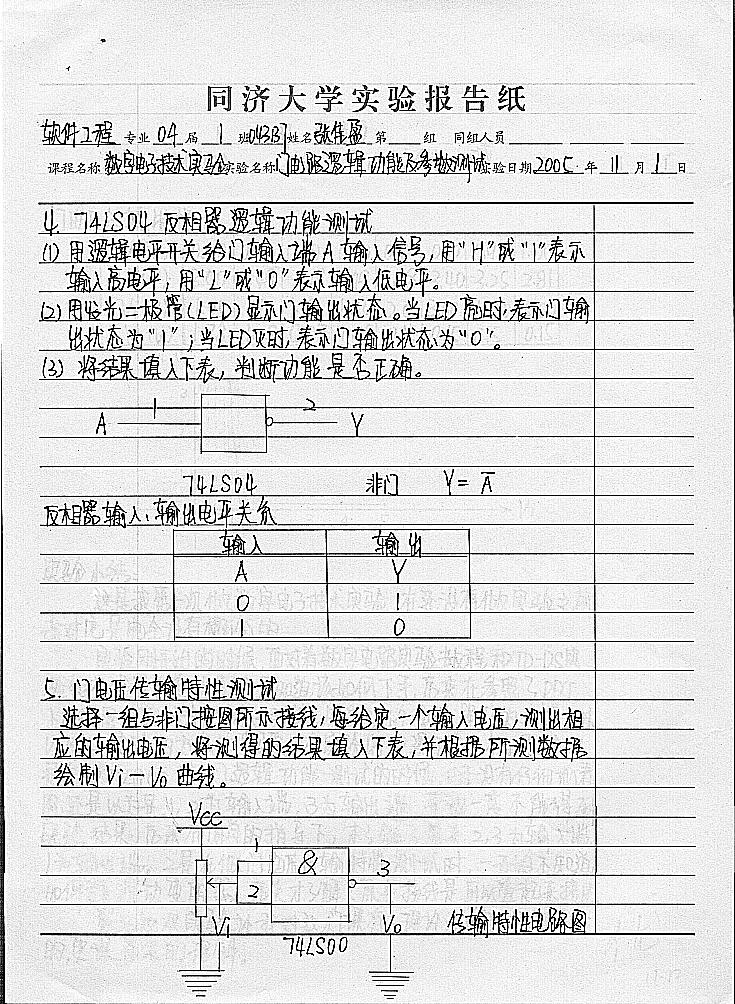 同济大学实验报告纸
软件工程 专业 04 届 1 班 04337 姓名 张佳盈 第 组 同组人员
课程名称 数字电子技术实验 实验名称 门电路逻辑功能及参数测试 实验日期 2005 年 11 月 1 日
4. 74LS04 反相器逻辑功能测试
(1) 用逻辑电平开关给门输入端A输入信号,用"H"或"1"表示
输入高电平,用"L"或"0"表示输入低电平。
(2) 用发光二极管(LED)显示门输出状态。当LED亮时,表示门输
出状态为"1";当LED灭时,表示门输出状态为"0"。
(3) 将结果填入下表,判断功能是否正确。
1 2
A Y
74LS04 非门 Y=A̅
反相器输入、输出电平关系
输入 输出
A Y
0 1
1 0
5. 门电压传输特性测试
选择一组与非门按图所示接线,每给定一个输入电压,测出相
应的输出电压,将测得的结果填入下表,并根据所测数据
绘制Vi-Vo曲线。
Vcc
1 & 3
2
Vi Vo 传输特性电路图
74LS00